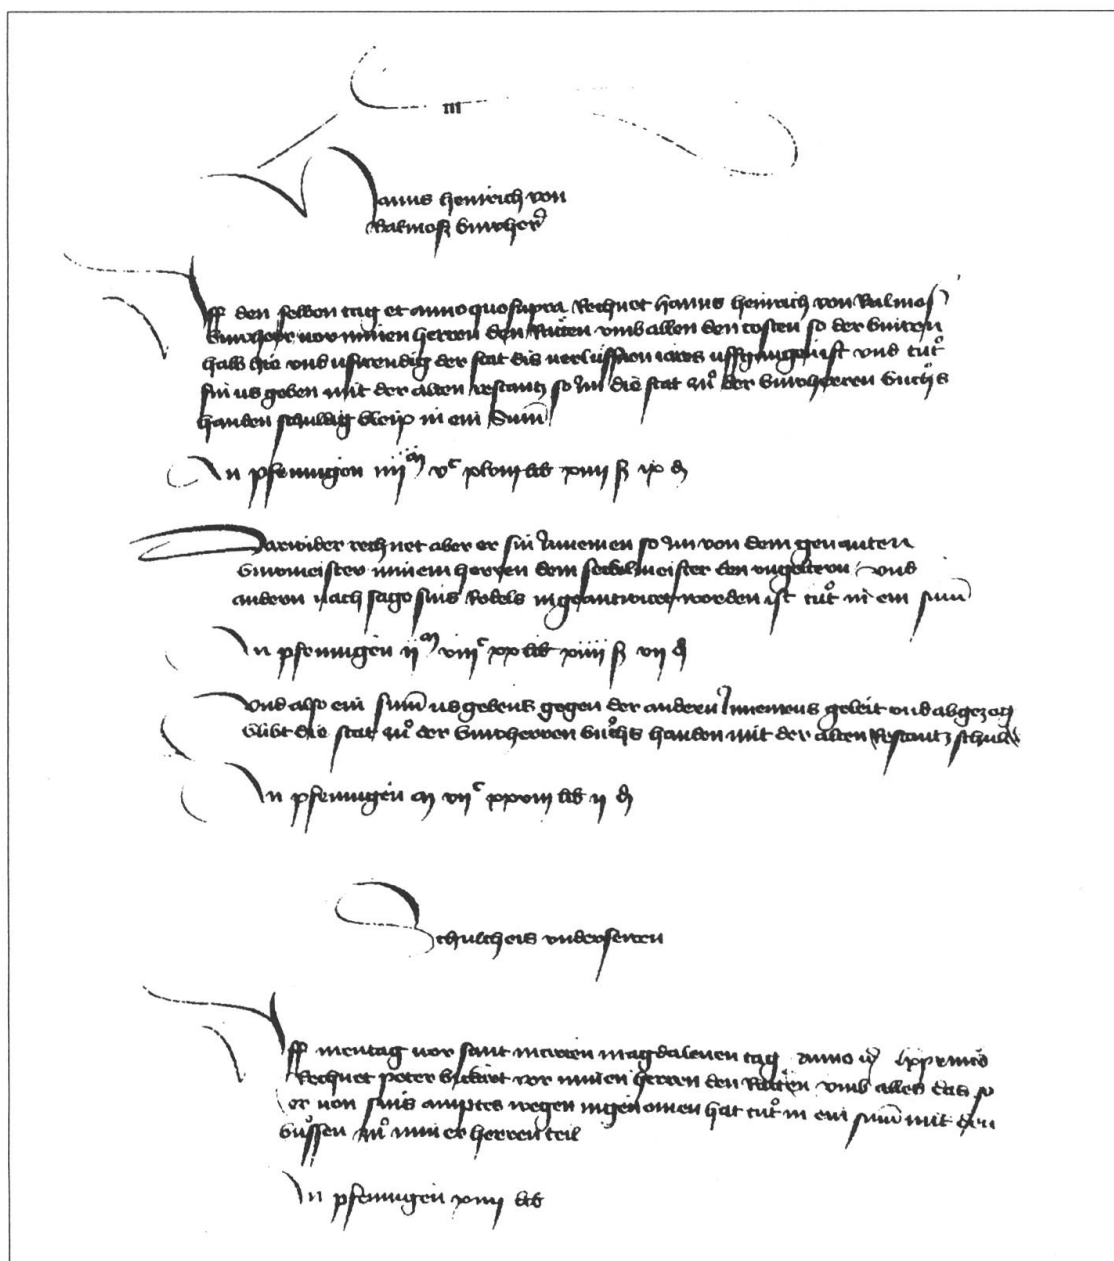 III
Hanns heinrich von
Balmoß Buwher
Uff den selben tag et anno quo supra Rechnet Hanns heinrich von Balmos
Buwher vor minen herren den Räten umb allen den costen so der Buwen
halb hie und uswendig der stat dis verlüffnen iares uffgangen ist und tůt
sin us geben mit der alten restantz so Im die stat zů der Buwherren
handen schuldig bleip in ein Sum
In pfenningen iiij M vc xlviij lib xiiij ß ix d
Darwider rechnet aber er sin Innemen so Im von dem genanten
Buwmeister minem herren dem seckelmeister den ungeltern und
andern nach sag sins Rodels ingeantwirt worden ist tůt in ein sum
In pfenningen ij M viijc xx lib xiiij ß vij d
Und also ein sum us gebens gegen der andern Innemens geleit und abgezog
blibt die stat zů der Buwherren handen mit der alten Restantz schuld
In pfenningen M vijc xxviij lib ij d
Schultheis undersewen
Uff mentag vor sant marien magdalenen tag anno
Rechnet peter vor minen herren den Räten umb alles das so
er von sins amptes wegen ingenomen hat tůt in ein sum mit den
Bůssen zů miner herren teil
In pfenningen xiiij lib